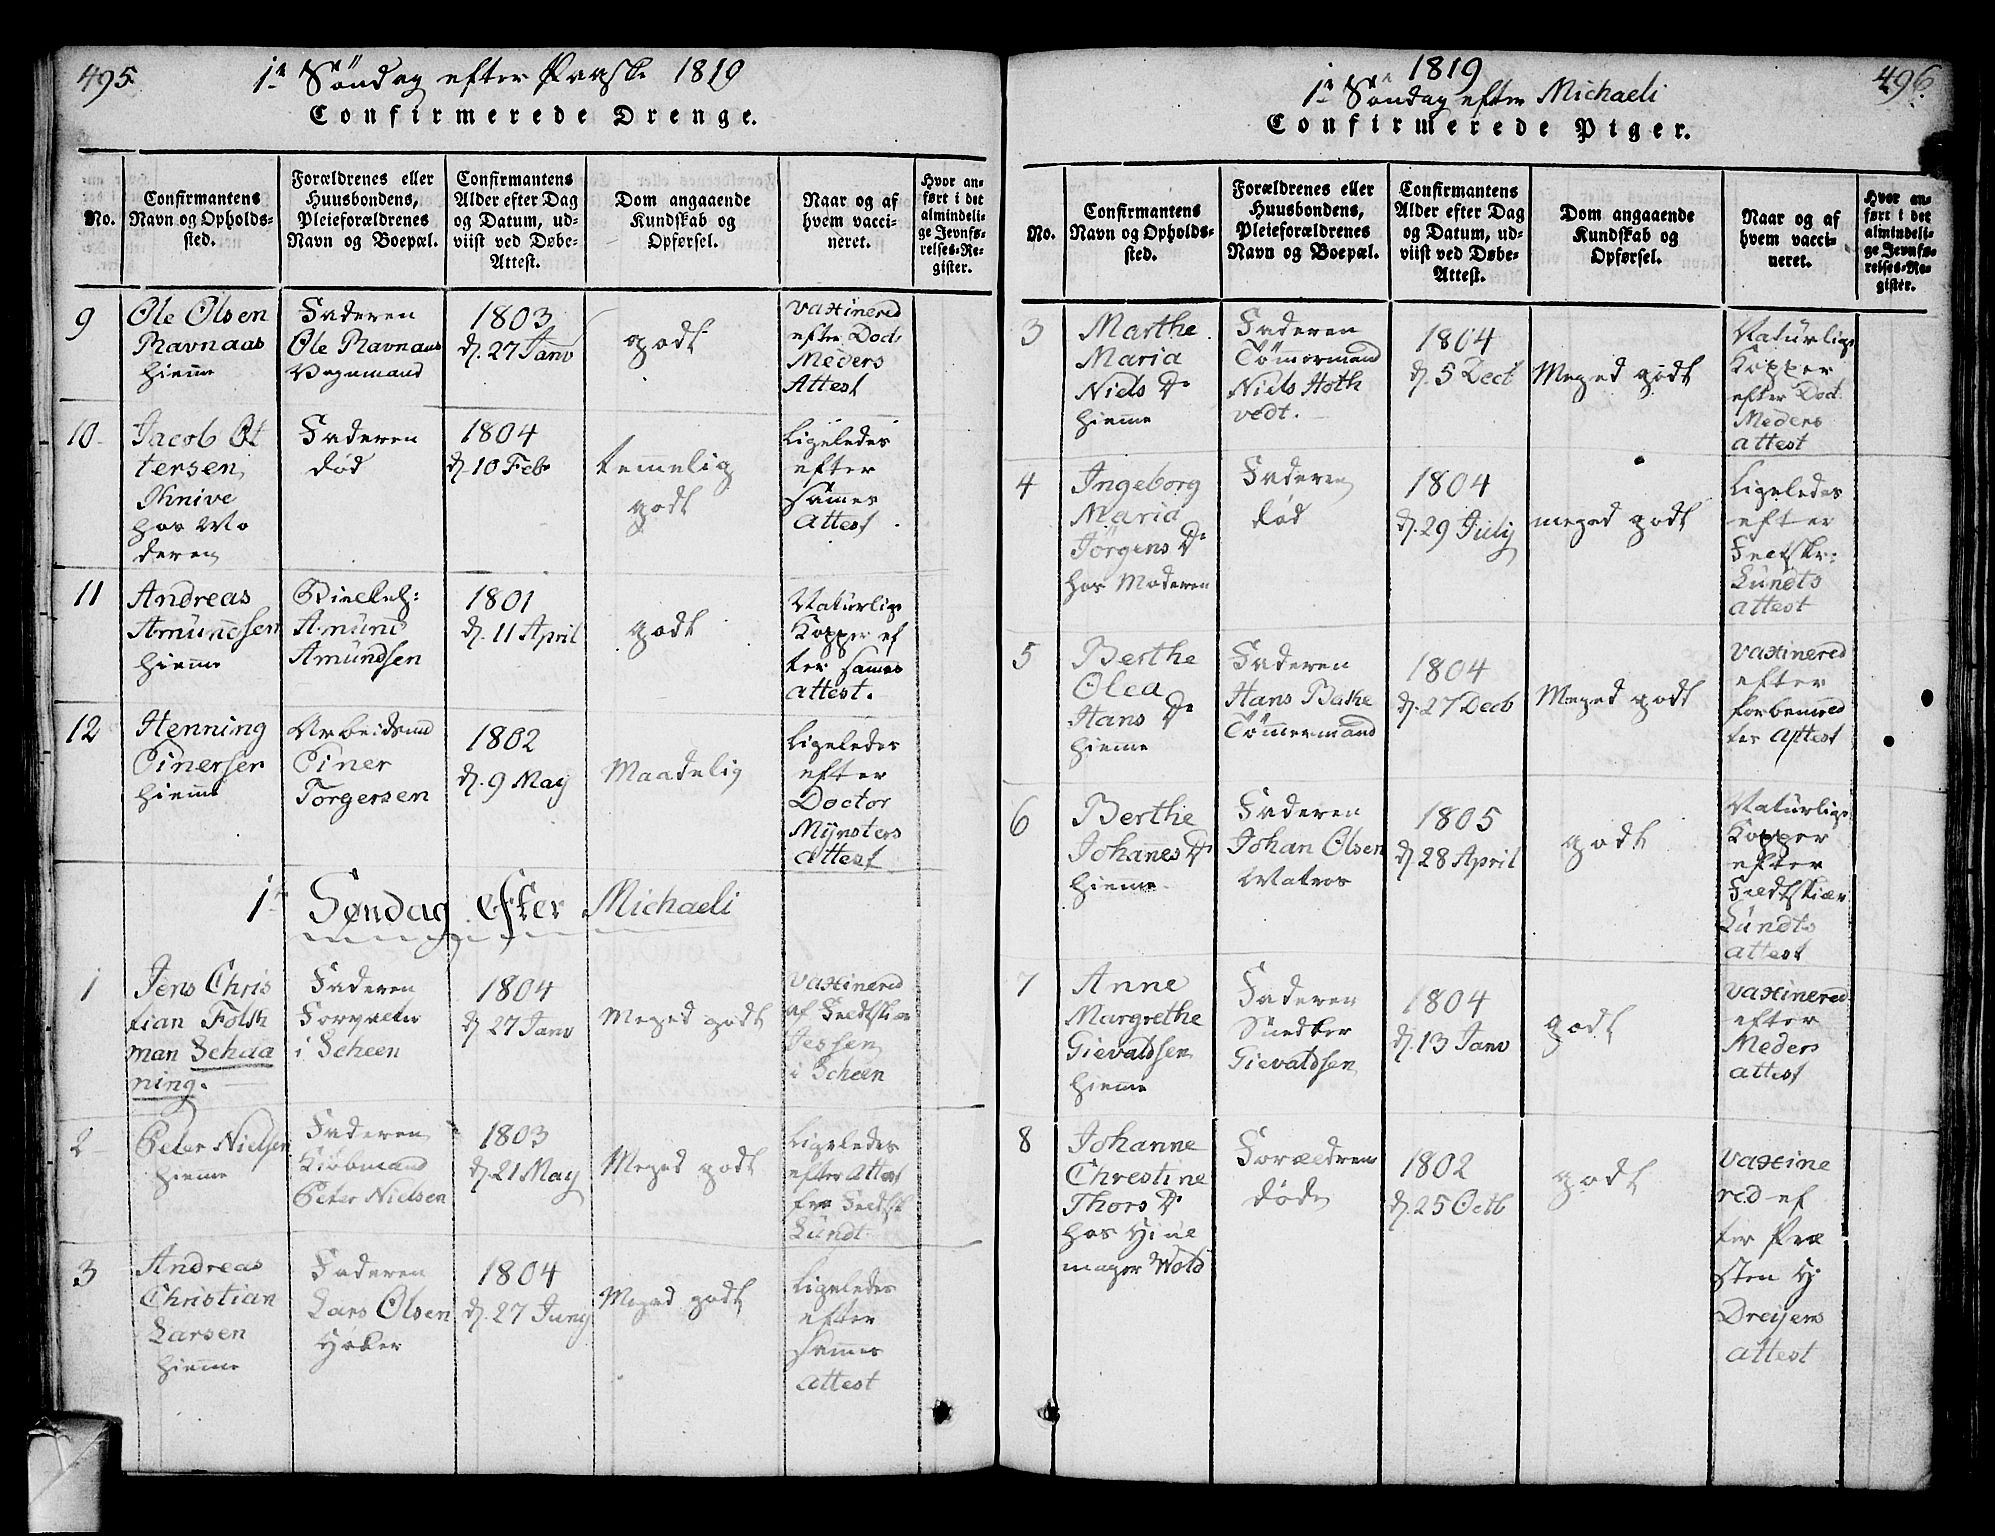 495.
1ste Søndag efter Paaske 1819
Confirmerede Drenge.
No.
Confirmantens
Navn og Opholds-
sted.
Forældrenes eller
Huusbondens,
Pleieforældrenes
Navn og Boepæl.
Confirmantens
Alder efter Dag
og Datum, ud-
viist ved Døbe-
Attest.
Dom angaaende
Kundskab og
Opførsel.
Naar og af
hvem vacci-
neret.
Hvor an-
ført i det
almindeli-
ge Jevnfø-
relses-Re-
gister.
9
Ole Olsen
Ravnaas
hiemme
Faderen
Ole Ravnaas
Vognmand
1803
d. 27 Janv
godt
vaxinered
efter Doct.
Meders
Attest
10
Jacob Ot
tersen
hos Mo
deren
Faderen
død
1804
d. 10 Feb
temmelig
godt
Ligeledes
efter
sammes
attest.
11
Andreas
Amundsen
hiemme
Amund
Amundsen
1801
d. 11 April
godt
Naturlige
Kopper ef
ter sammes
attest.
12
Henning
Einersen
hiemme
Arbeidsmd
Einer
Torgersen
1802
d. 9 May
Maadelig
Ligeledes
efter
Doctor
Mynsters
attest
1ste Søndag efter Michaeli
1
Jens Chris
tian Folsh
man Schaa
ning.
Faderen
Forvalter
i Scheen
1804
d. 27 Janv
Meged godt
vaxinered
af Feldtskiær
Jessen
i Scheen
2
Peter Nielsen
hiemme
Faderen
Kiøbmand
Peter Nielsen
1803
d. 21 May
Meged godt
Ligeledes
efter Attest
fra Feldtsk
Lundt
3
Andreas
Christian
Larsen
hiemme
Faderen
Lars Olsen
Høker
1804
d. 27 Juny
Meged godt
Ligeledes
efter
sammes
attest
496.
1819
1ste Søndag efter Michaeli
Confirmerede Piger.
No.
Confirmantens
Navn og Opholds-
sted.
Forældrenes eller
Huusbondens,
Pleieforældrenes
Navn og Boepæl.
Confirmantens
Alder efter Dag
og Datum, ud-
viist ved Døbe-
Attest.
Dom angaaende
Kundskab og
Opførsel.
Naar og af
hvem vacci-
neret.
Hvor an-
ført i det
almindeli-
ge Jevnfø-
relses-Re-
gister.
3
Marthe
Maria
Niels Dr
hiemme
Faderen
Tømermand
Niels Hoth
vedt.
1804
d. 5 Dect
Meged godt
Naturlige
Kopper
efter Doct.
Meders
attest
4
Ingeborg
Maria
Jørgens Dr
hos Moderen
Faderen
død
1804
d. 29 July
meged godt
Ligeledes
efter
Feltskr:
Lundts
attest
5
Berthe
Olea
Hans Dr
hiemme
Faderen
Hans Bakke
Tømmermand
1804
d. 27 Decb
Meged godt
vaxinered
efter
forbemeld
tes attest
6
Berthe
Johanes Dr
hiemme
Faderen
Johan Olsen
Matros
1805
d. 28 April
godt
Naturlige
Kopper
efter
Feldtskiær
Lundts
attest
7
Anne
Margrethe
Gievaldsen
hiemme
Faderen
Snedker
Gievaldsen
1804
d. 13 Janv
godt
vaxinered
efter
Meders
attest
8
Johanne
Chrestine
Thors Dr
hos Hiul
mager Wold
Forældrene
døde
1802
d. 25 Octb
godt
vaxine
red ef
ter Præ
sten H.
Dreyers
attest